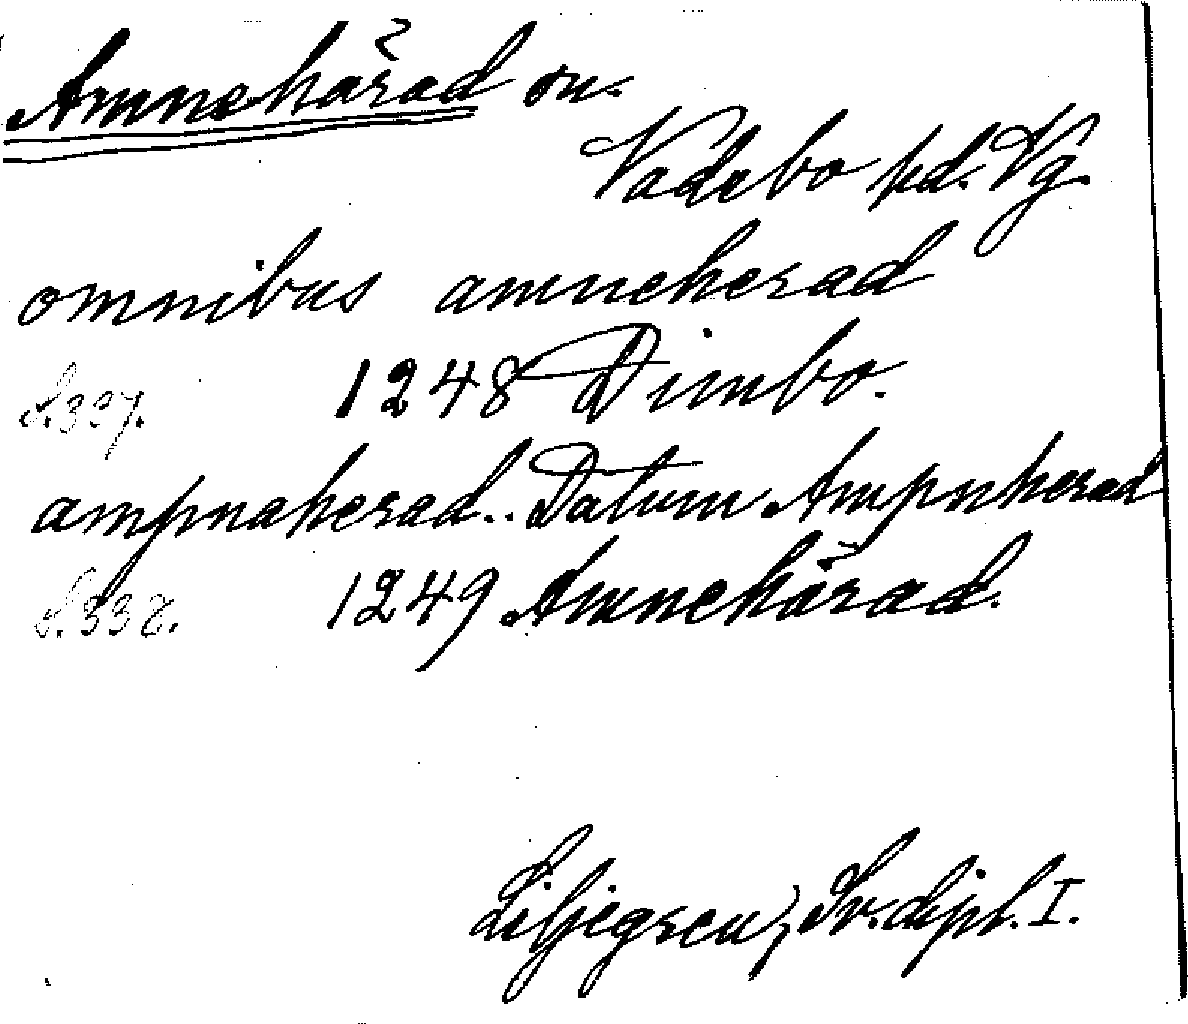 Amnehärad sn.
Vadsbo hd. Vg.
omnibus amneherad
S.337. 1248 Dimbo.
ampnaherad.. Datum Ampnherad
S.338. 1249 Amnehärad.
Liljegren, Sv. dipl. I.